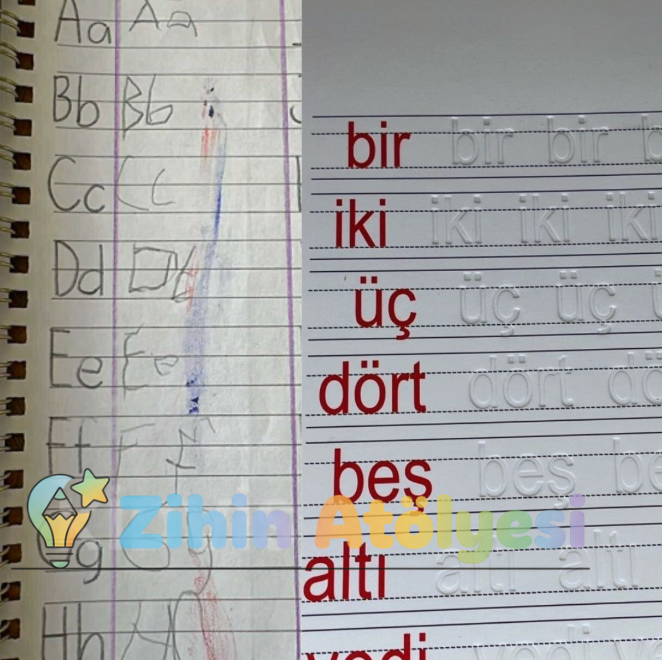 Aa Aa
Bb Bb
Cc Cc
Dd Dd
Ee Ee
Ff Ff
Gg G
Hh H
bir bir bir b
iki iki iki iki
üç üç üç
dört dört dö
beş beş be
altı altı altı
yedi yedi ye
Zihin Atölyesi